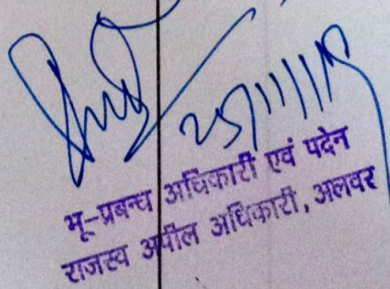 25/11/19
भू-प्रबन्ध अधिकारी एवं पदेन
राजस्व अपील अधिकारी, अलवर